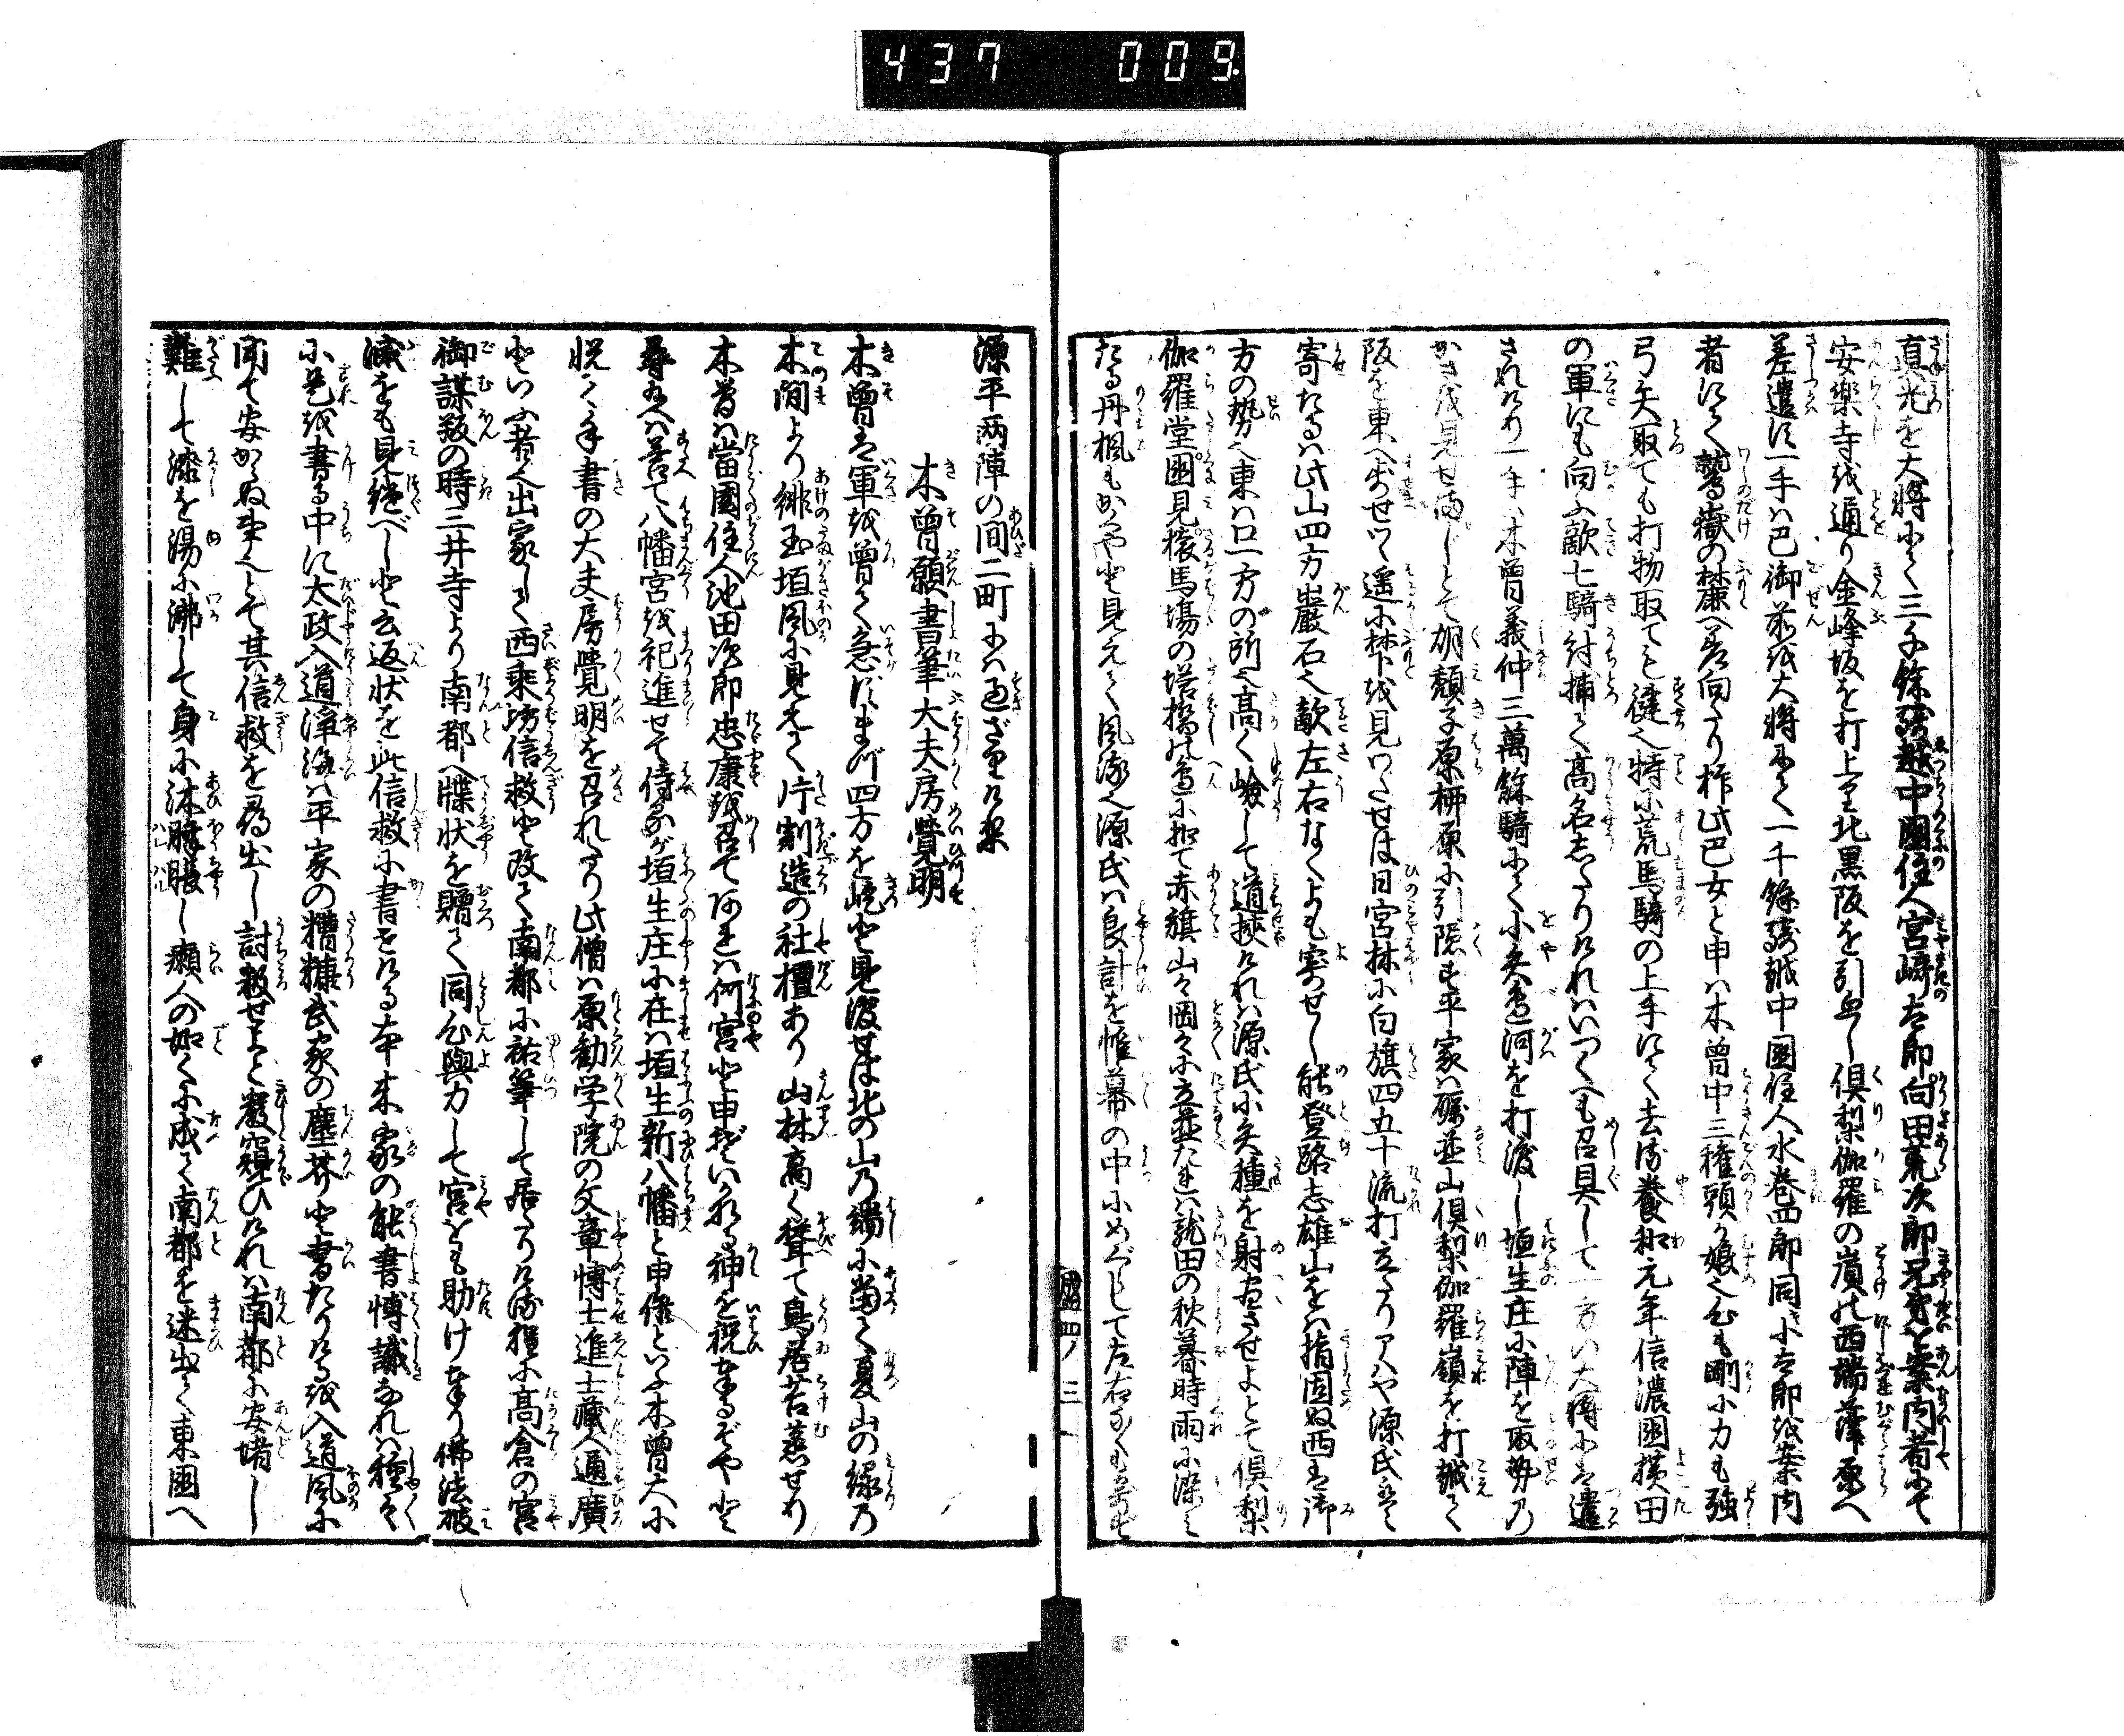 437 009
真光を大将にて三千余騎越中国住人宮崎太郎向田荒次郎兄弟を案内者にて
安楽寺を通り金峰坂を打上り北黒阪を引廻し倶梨伽羅の嶺の西端葎原へ
差遣に一手ハ巴御前を大将にて一千余騎越中国住人水巻四郎同小太郎を案内
者にて鷲嶽の麓へ差向たり抑此巴女と申ハ木曽中三権頭が娘也心も剛に力も強
弓矢取ても打物取ても健也特に荒馬騎の上手にて去ぬ養和元年信濃国横田
の軍にも向ふ敵七騎討捕て高名したりければいづくへも召具して一方の大将には遣
されけり一手ハ木曽義仲三萬餘騎にて小矢部河を打渡し垣生庄に陣を取勢の
かさを見せじとて朔頽子原柳原に引隠す平家ハ礪並山倶梨伽羅嶺を打越て
阪を東へ歩せつゝ遥に麓を見わたせば日宮林に白旗四五十流打立たりアハや源氏は
寄たるハ此山四方巌石也敵左右なくよも寄せじ能登路志雄山をハ指固ぬ西は御
方の勢也東ハ口一方の所也高く嶮して道挾ければ源氏に矢種を射尽させよとて倶梨
伽羅堂国見猿馬場の塔橋の辺に扣て赤旗山々岡々に立並たれハ龍田の秋暮時雨に染る
たる丹楓もかくやと見えて風流也源氏ハ良計を帷幕の中にめぐらして左右なくも寄せず
盛四ノ三
源平両陣の間二町にハ過ざりけり
木曽願書筆大夫房覚明
木曽は軍を曽て急にまづ四方を屹と見渡せば北の山乃端に当て夏山の緑乃
木間より緋玉垣風に見えて片割造の社壇あり山林高く聳て鳥居苔蒸せり
木曽ハ當国住人池田次郎忠康を召て何れハ何宮と申ぞいかなる神を祝奉るぞやと
尋れバ答て八幡宮を祀進せて侍るが垣生庄に在ハ垣生新八幡と申候といふ木曽大に
悦て手書の大夫房覚明を召れたり此僧ハ原勧学院の文章博士進士蔵人通廣
といふ者也出家して西乗坊信救と改て南都に祐筆して居たりけり権に高倉の宮
御謀叛の時三井寺より南都へ牒状を贈て同心與力して宮をも助け奉り佛法破
滅をも見継べしと云返状を此信救に書せける本来家の能書博識なれハ種々
に是を書る中に太政入道浄海ハ平家の糟糠武家の塵芥と書たりけるを入道風に
聞て安からぬ事也とて其信救を尋出し討殺せよと厳窺ひけれハ南都に安堵し
難して漆を湯に沸して身に沐膖脹し癩人の如くに成て南都を迷出て東国へ